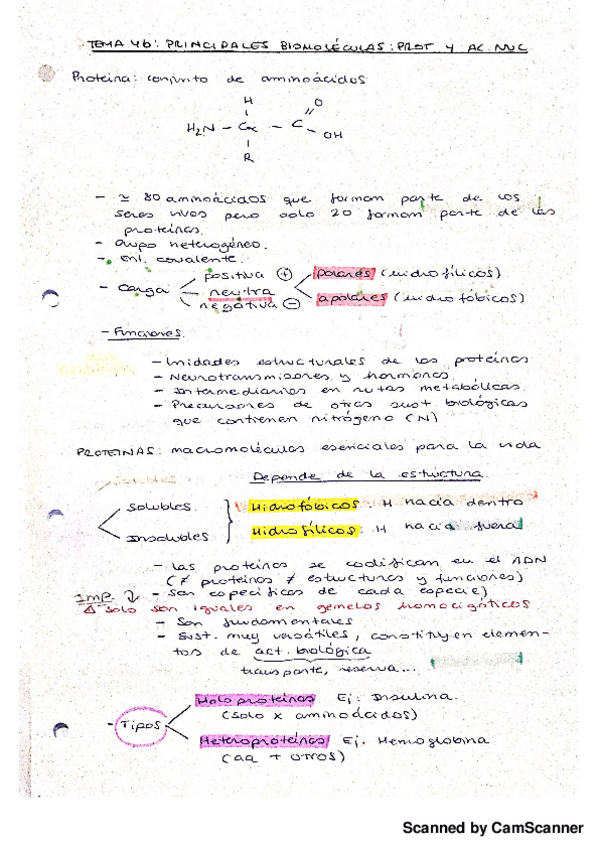 TEMA 4b: PRINCIPALES BIOMOLÉCULAS: PROT Y AC. NUC
Proteína: conjunto de aminoácidos
H O
H₂N - Cα - C - OH
R
- ≃ 80 aminoácidos que forman parte de los
seres vivos pero solo 20 forman parte de las
proteínas.
- Grupo heterogéneo.
- enl. covalente.
- carga
positiva ⊕
neutra
negativa ⊖
polares (hidrofílicos)
apolares (hidrofóbicos)
- Funciones.
- Unidades estructurales de las proteínas
- Neurotransmisores y hormonas.
- Intermediarios en rutas metabólicas.
- Precursores de otras sust. biológicas
que contienen nitrógeno (N)
PROTEÍNAS: macromoléculas esenciales para la vida
Depende de la estructura.
solubles.
Insolubles
Hidrofóbicos: H hacia dentro
Hidrofílicos: H hacia fuera
- Las proteínas se codifican en el ADN
(≠ proteínas ≠ estructuras y funciones)
IMP. ↓ - Son específicas de cada especie)
Δ solo son iguales en gemelos homocigóticos
- Son fundamentales
- Sust. muy versátiles, constituyen elemen-
tos de act. biológica
transporte, reserva...
- Tipos
Holoproteínas Ej: Insulina.
(solo x aminoácidos)
Heteroproteínas Ej. Hemoglobina
(aa + otros)
Scanned by CamScanner